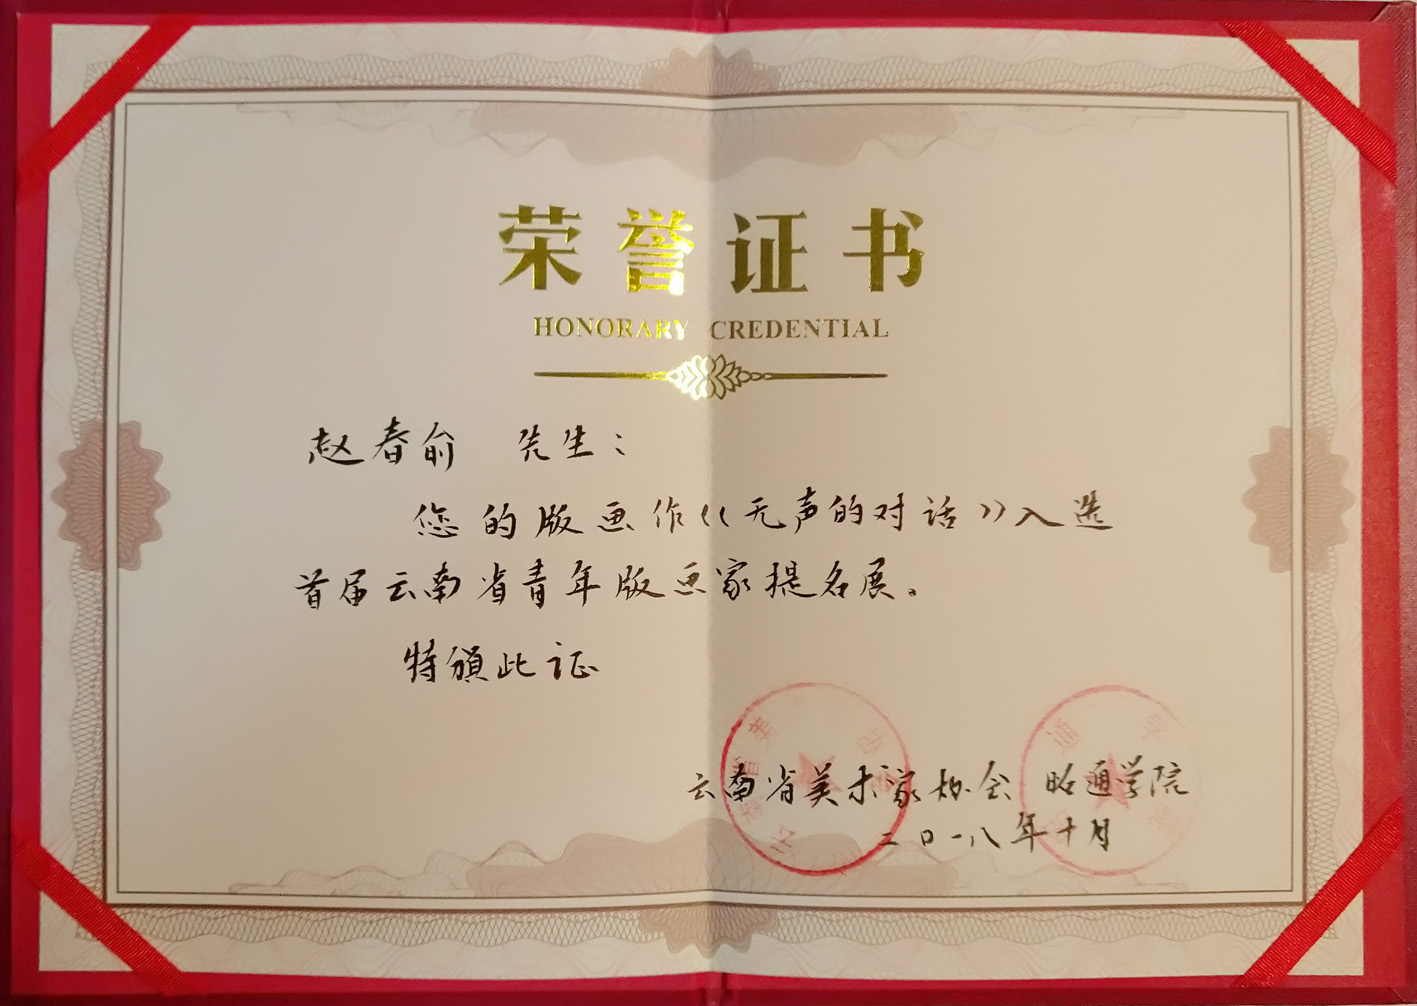 荣誉证书
HONORARY CREDENTIAL
赵春俞 先生：
您的版画作《无声的对话》入选
首届云南省青年版画家提名展。
特颁此证
云南省美术家协会 昭通学院
二〇一八年十月